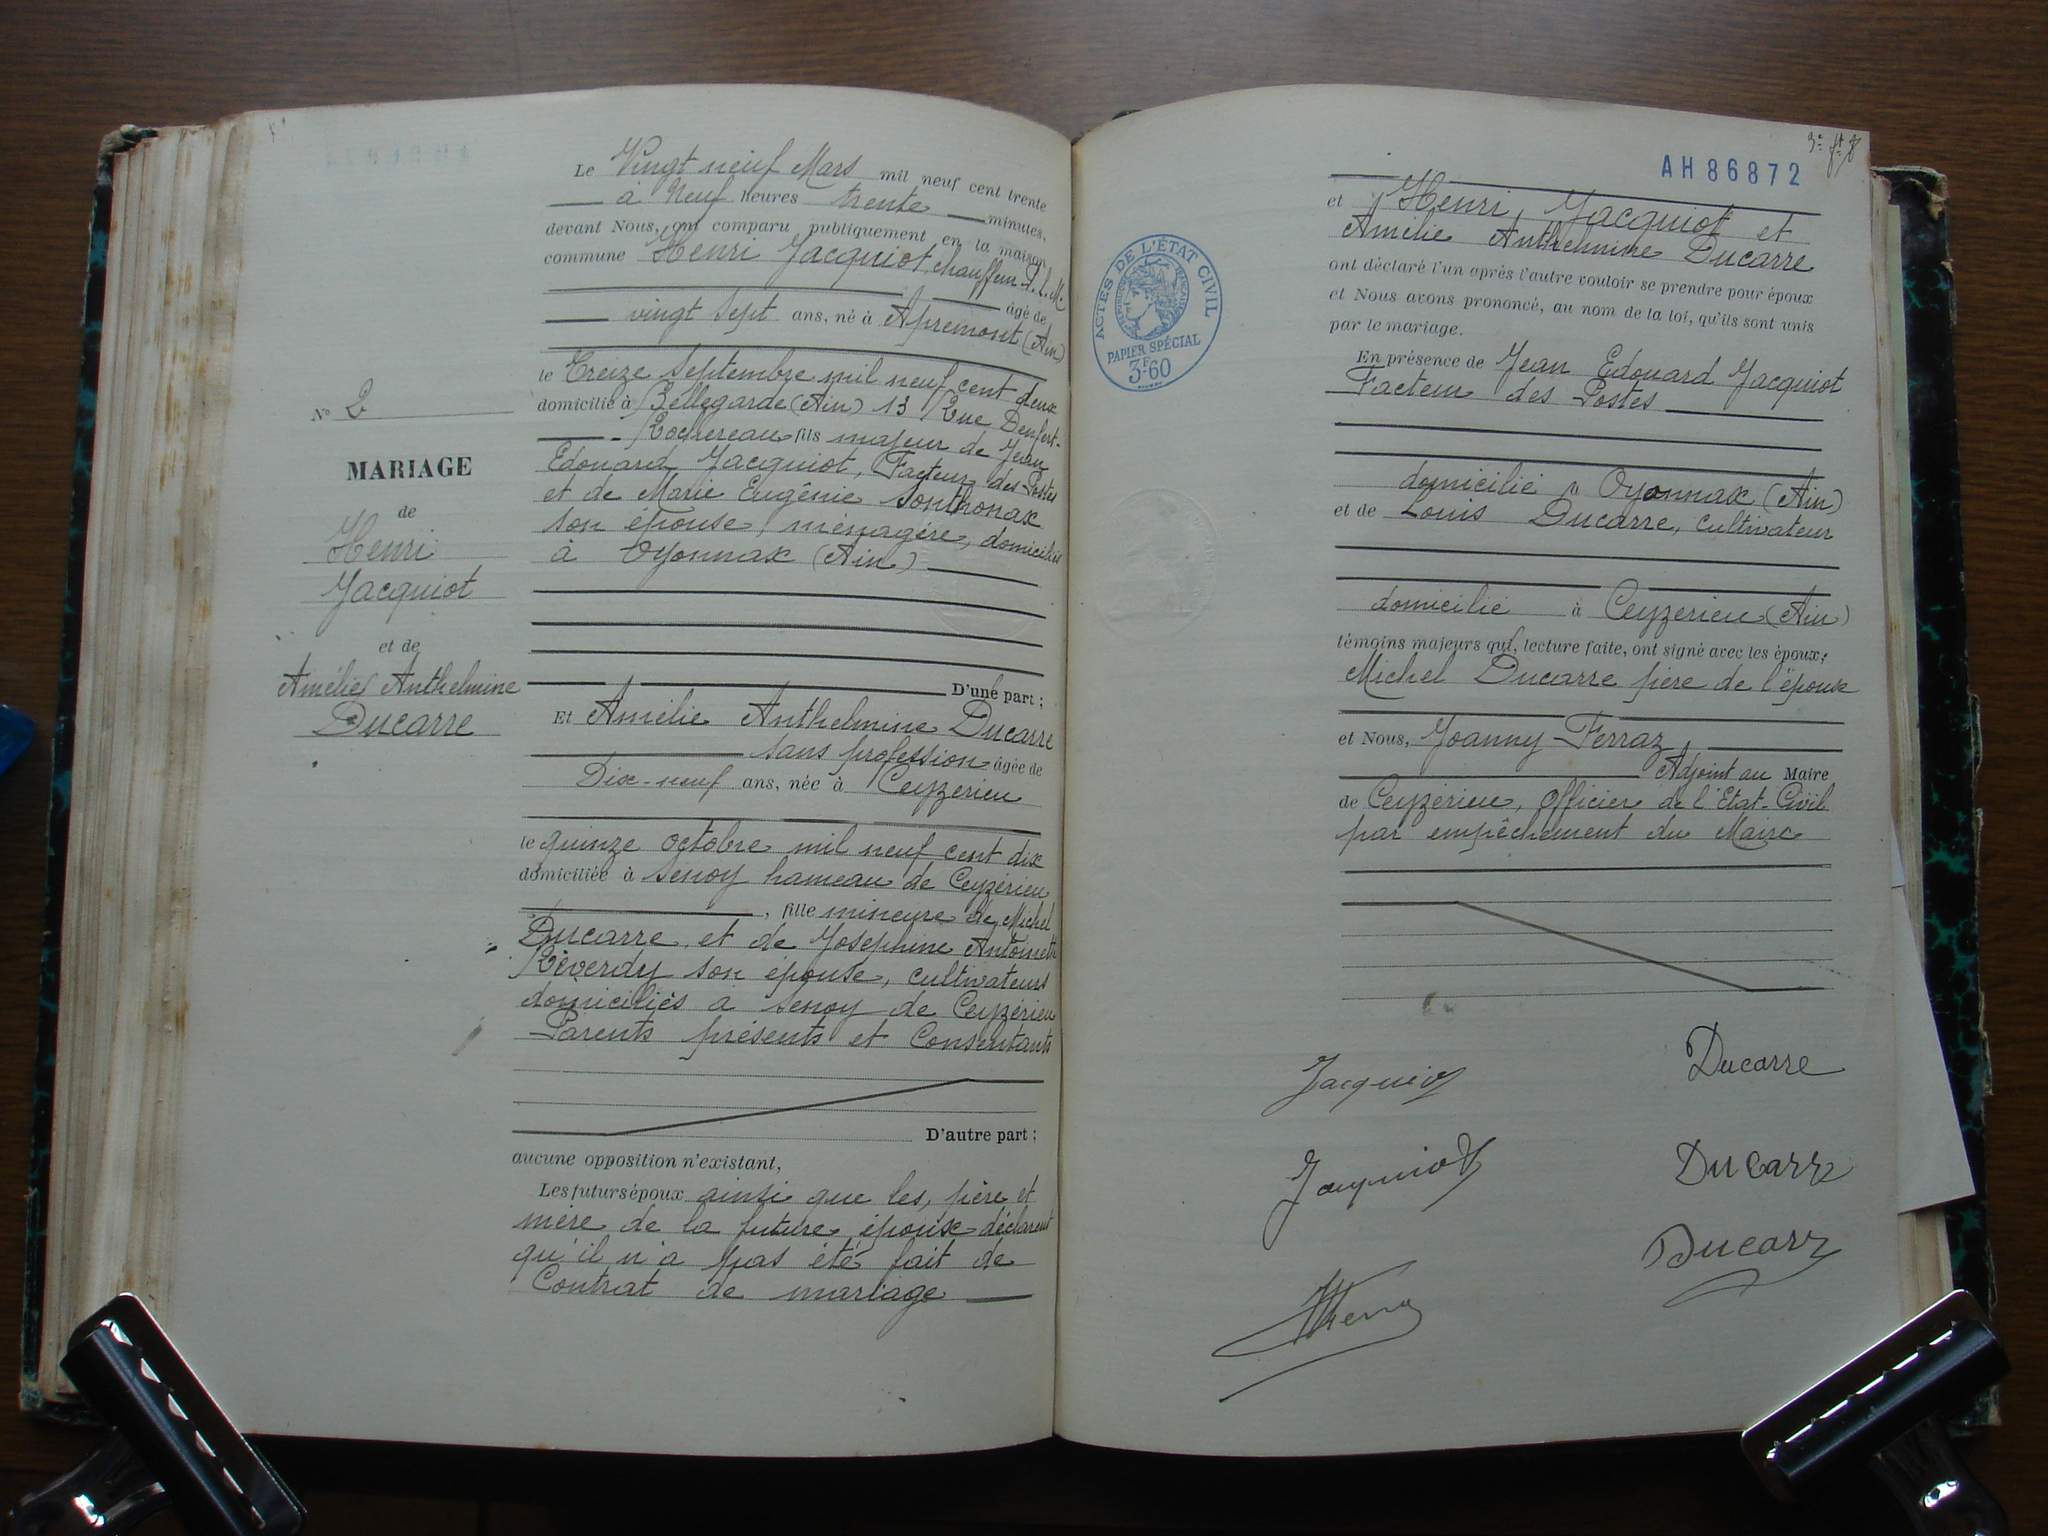 Nº 2
MARIAGE
de
Henri
Jacquiot
et de
Amélie Anthelmine
Ducarre
Le Vingt neuf Mars mil neuf cent trente
à Neuf heures trente minutes,
devant Nous, ont comparu publiquement en la maison
commune Henri Jacquiot, chauffeur P.L.M.
âgé de
vingt sept ans, né à Apremont (Ain)
le Treize Septembre mil neuf cent deux
domicilié à Bellegarde (Ain) 13 Rue Denfert-
Rochereau fils majeur de Jean
Edouard Jacquiot, Facteur des Postes
et de Marie Eugénie Sonthonax
son épouse, ménagère, domiciliés
à Oyonnax (Ain)
D'une part ;
Et Amélie Anthelmine Ducarre
sans profession âgée de
Dix-neuf ans, née à Ceyzérieu
le quinze octobre mil neuf cent dix
domiciliée à Senoy hameau de Ceyzérieu
, fille mineure de Michel
Ducarre et de Joséphine Antoinette
Réverdy son épouse, cultivateurs
domiciliés à Senoy de Ceyzérieu
Parents présents et Consentants
D'autre part ;
aucune opposition n'existant,
Les futurs époux ainsi que les père et
mère de la future épouse déclarent
qu'il n'a pas été fait de
Contrat de mariage
AH86872
ACTES DE L'ÉTAT CIVIL
PAPIER SPÉCIAL
3F60
et Henri Jacquiot et
Amélie Anthelmine Ducarre
ont déclaré l'un après l'autre vouloir se prendre pour époux
et Nous avons prononcé, au nom de la loi, qu'ils sont unis
par le mariage.
En présence de Jean Edouard Jacquiot
Facteur des Postes
domicilié à Oyonnax (Ain)
et de Louis Ducarre, cultivateur
domicilié à Ceyzérieu (Ain)
témoins majeurs qui, lecture faite, ont signé avec les époux,
Michel Ducarre père de l'épouse
et Nous, Joanny Ferraz,
Adjoint au Maire
de Ceyzérieu, Officier de l'Etat-Civil
par empêchement du Maire
Jacquiot
Ducarre
Jacquiot
Ducarre
Ducarre